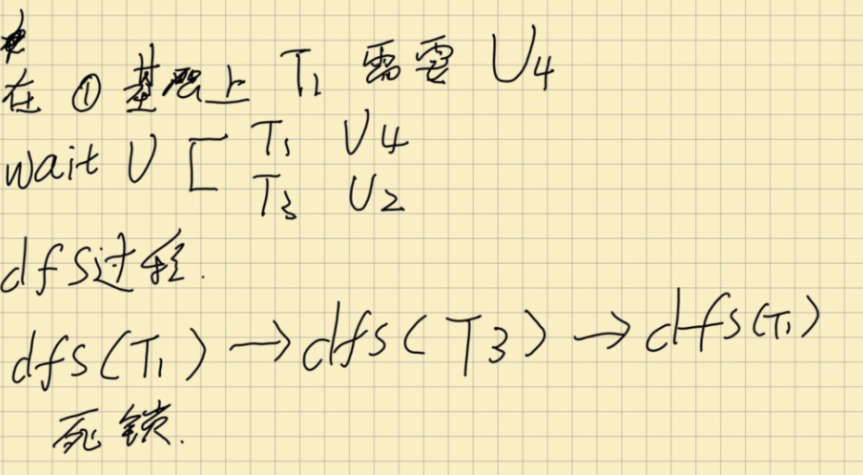 在 ① 基础上 T₁ 需要 U₄
wait U [ T₁ U₄
T₃ U₂
dfs过程.
dfs(T₁) → dfs(T₃) → dfs(T₁)
死锁.